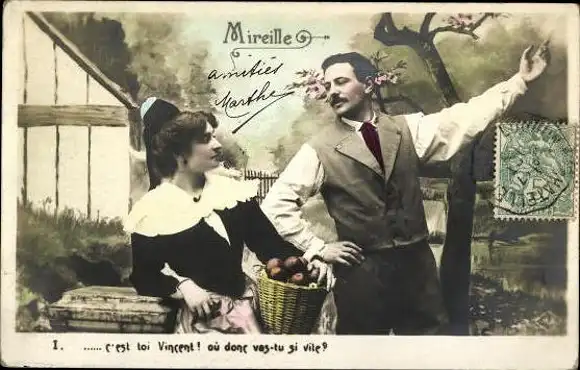 Mireille
amitiés
Marthe
I. ...... c'est toi Vincent! où donc vas-tu si vite?